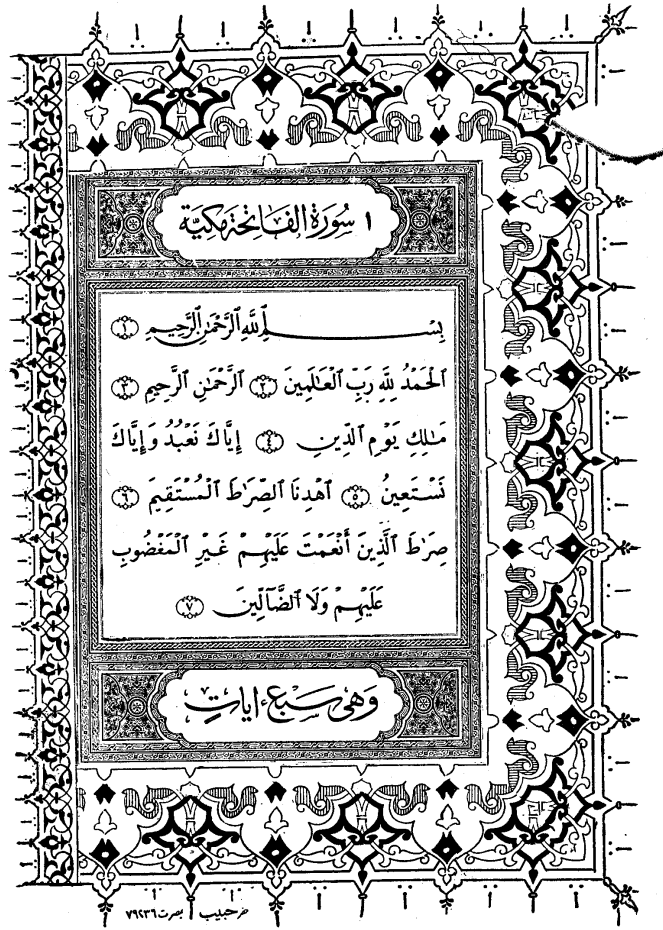 ١ سُورَةُ الفَاتِحَةِ مَكِيَّة
بِسْمِ ٱللَّهِ ٱلرَّحْمَٰنِ ٱلرَّحِيمِ ١
ٱلْحَمْدُ لِلَّهِ رَبِّ ٱلْعَٰلَمِينَ ٢ ٱلرَّحْمَٰنِ ٱلرَّحِيمِ ٣
مَٰلِكِ يَوْمِ ٱلدِّينِ ٤ إِيَّاكَ نَعْبُدُ وَإِيَّاكَ
نَسْتَعِينُ ٥ ٱهْدِنَا ٱلصِّرَٰطَ ٱلْمُسْتَقِيمَ ٦
صِرَٰطَ ٱلَّذِينَ أَنْعَمْتَ عَلَيْهِمْ غَيْرِ ٱلْمَغْضُوبِ
عَلَيْهِمْ وَلَا ٱلضَّآلِّينَ ٧
وَهِيَ سَبْعُ ءَايَاتٍ